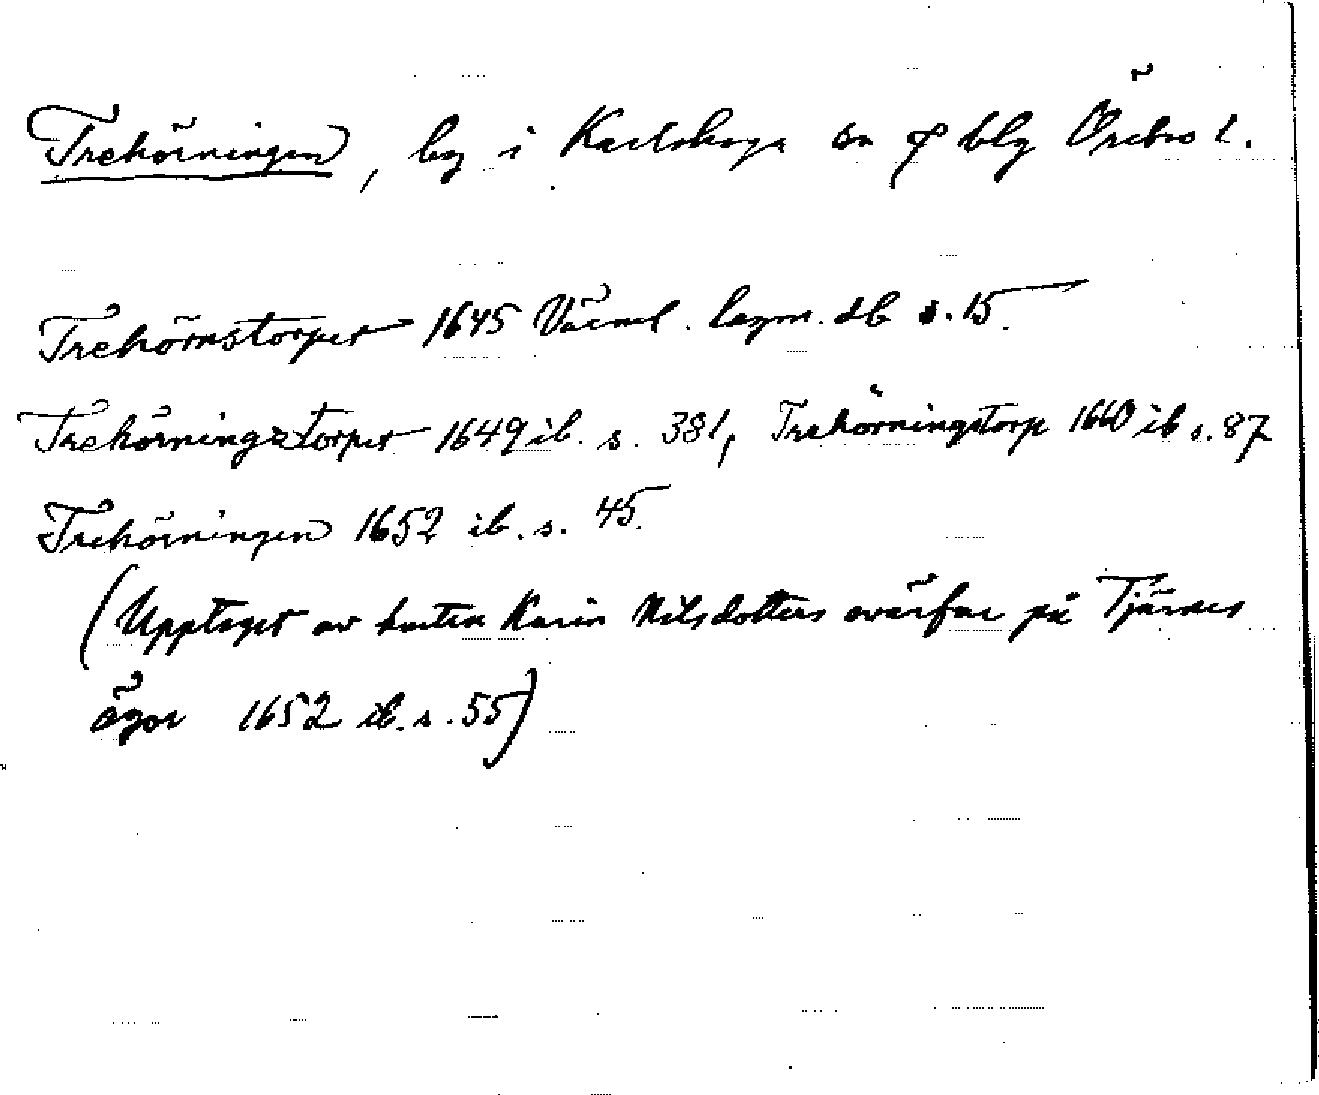 Trehörningen, by i Karlskoga sn o blg Örebro l.
Trehörnstorpet 1645 Värml. lagm. db s. 15.
Trehörningstorpet 1649 ib. s. 381, Trehörningstorp 1660 ib s. 87
Trehörningen 1652 ib. s. 45.
(Upptaget av Karin Nilsdotters svärfar på Tjärnes
ägor 1652 ib. s. 55)